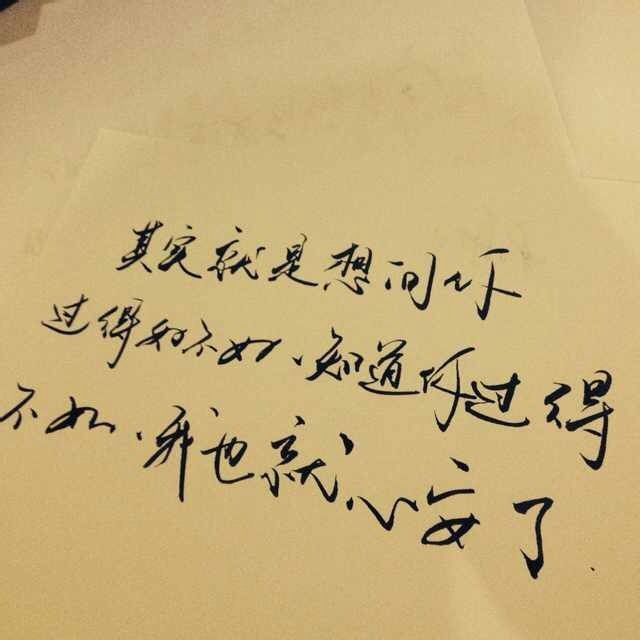 其实就是想问你
过得好不好、知道你过得
不好、我也就心安了.